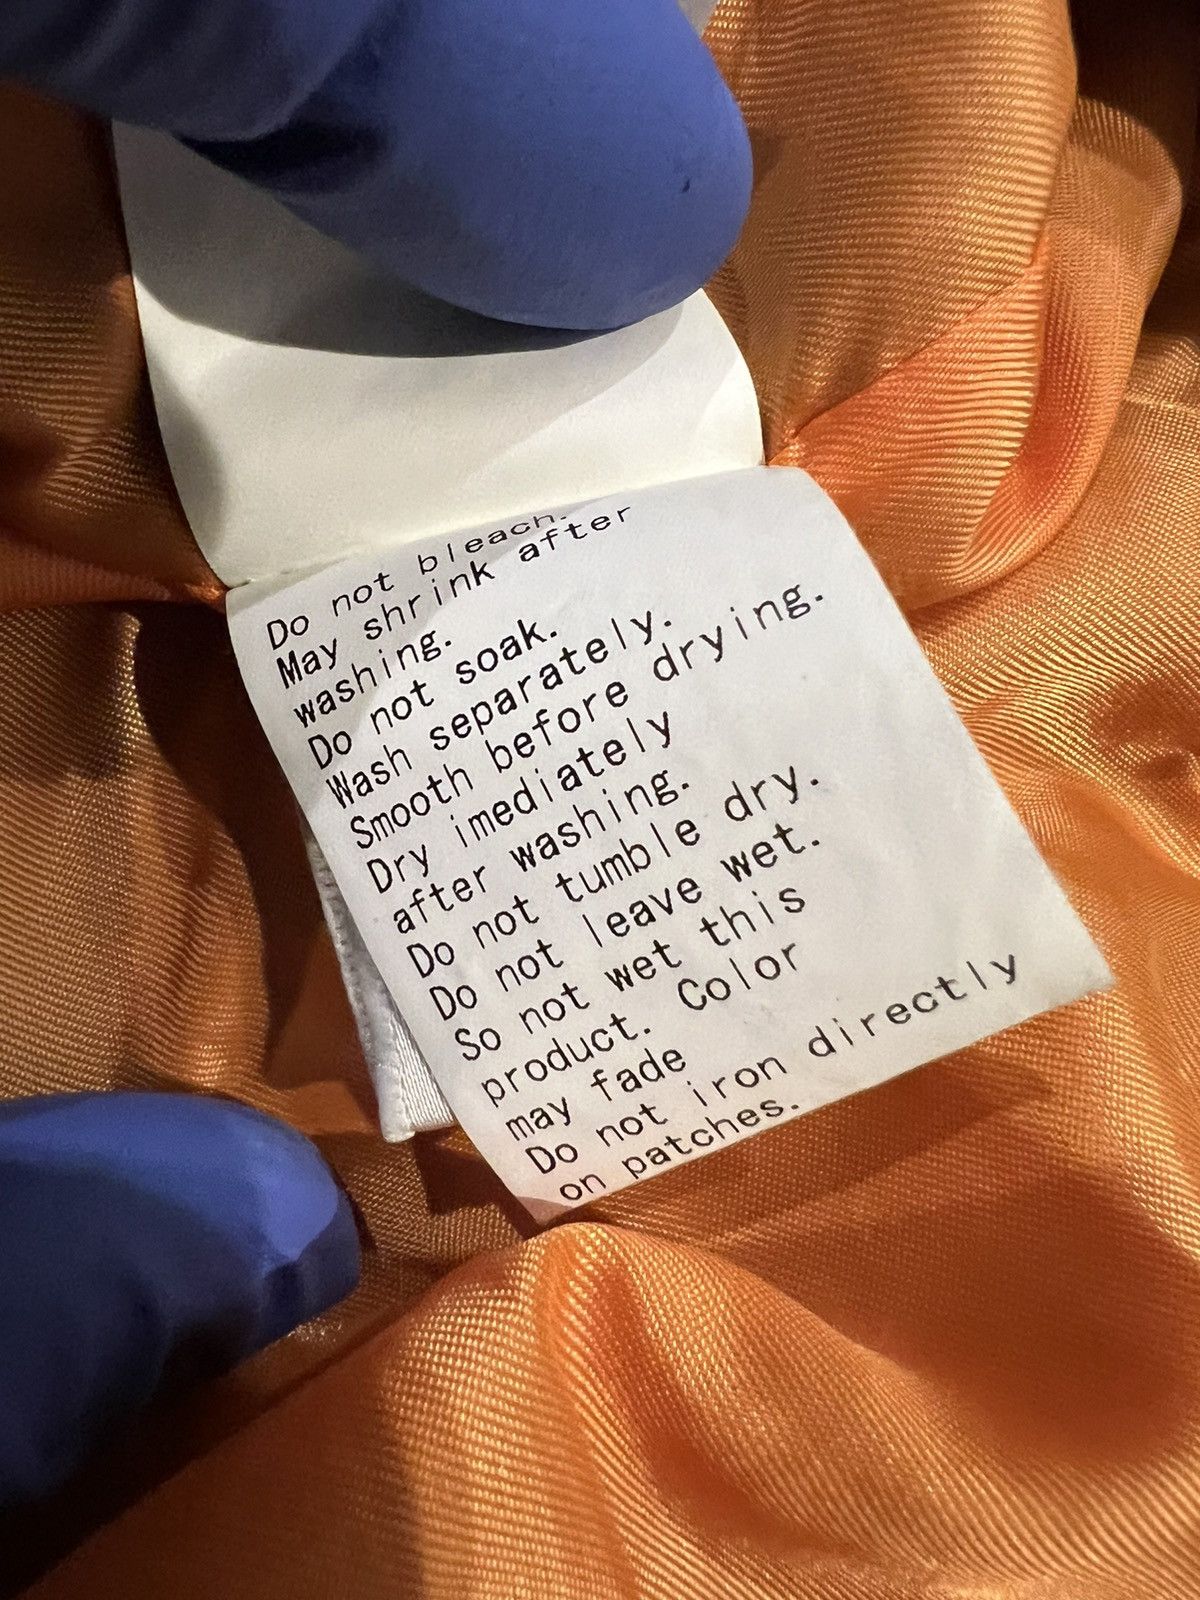 Do not bleach.
May shrink after
washing.
Do not soak.
Wash separately.
Smooth before drying.
Dry imediately
after washing.
Do not tumble dry.
Do not leave wet.
So not wet this
product. Color
may fade
Do not iron directly
on patches.